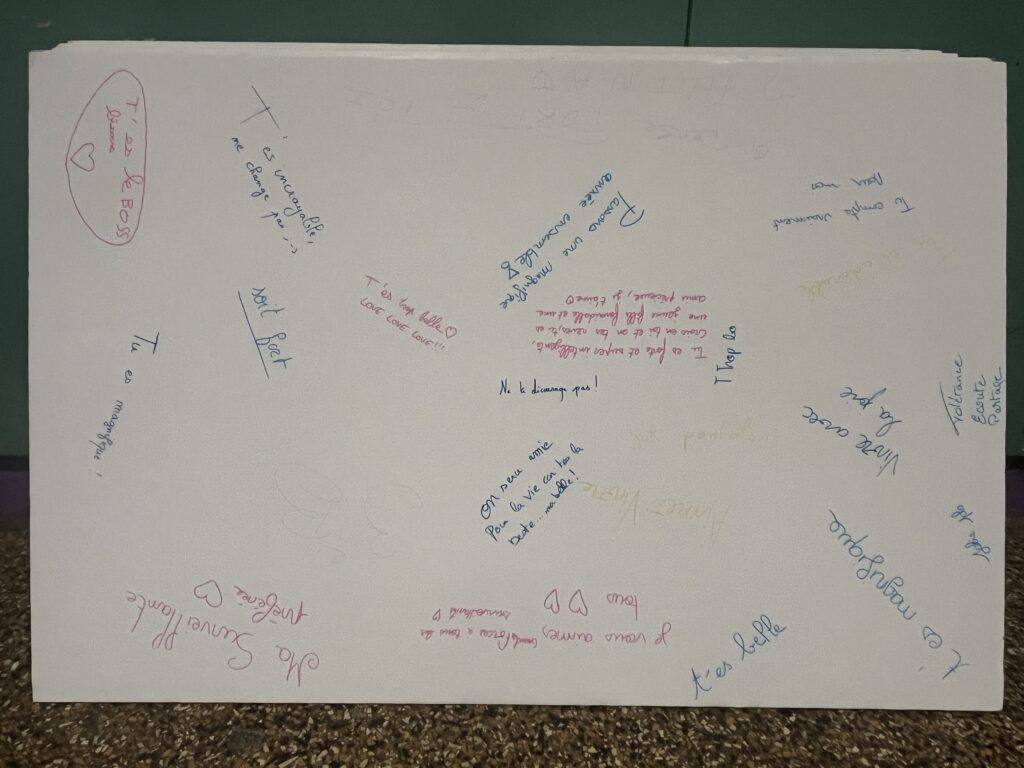 T'es le BOSS
T'es incroyable,
me change pas :-)
Passons une magnifique
année ensemble
Pas
Te compte vraiment
Tu es adorable
soit fort
T'es trop belle
LOVE LOVE LOVE!!!
Tu es forte et super intelligente,
Crois en toi et en tes rêves, tu es
une jeune fille formidable et une
amie précieuse, je t'aime
T trop bo
Ne te décourage pas !
Tu es magnifique !
Vivre avec
la joie
Tolérance
Ecoute
Partage
On sera amie
Pour la vie car tes la
beste... ma belle!
Aimer Vivre
t'es magnifique
Ma Surveillante
préférée
je vous aime,
tous
t'es belle